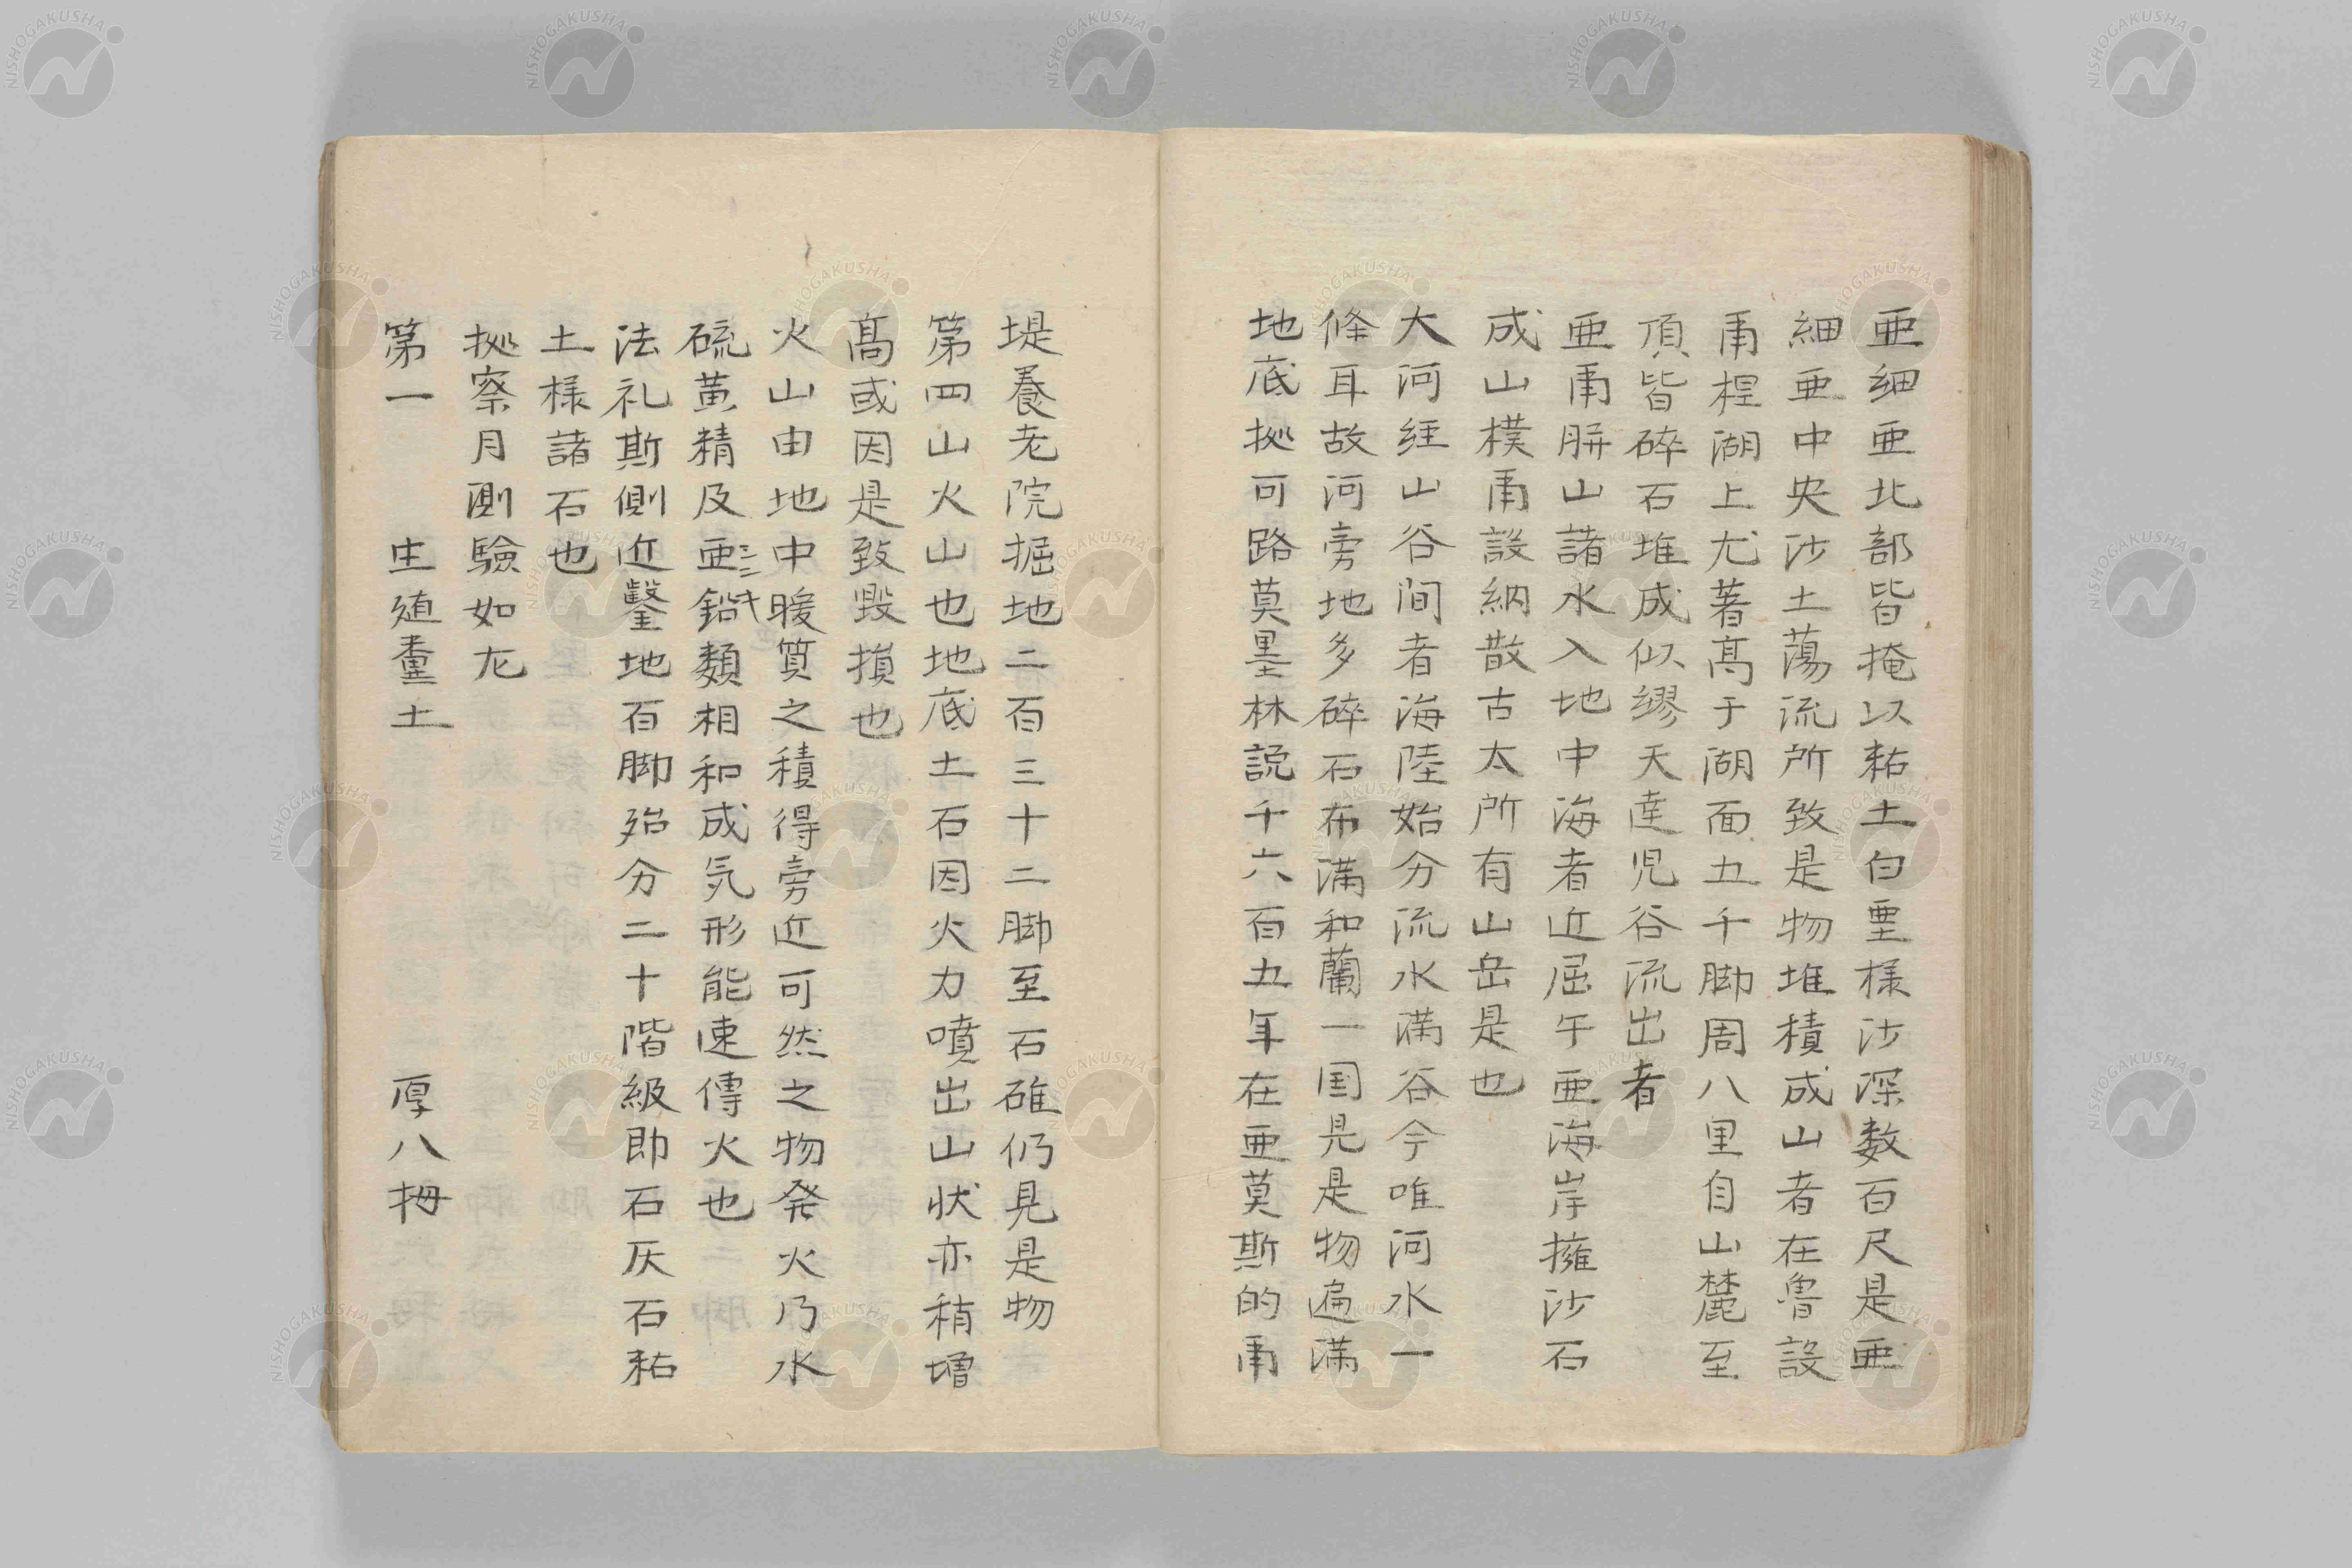 亜細亜北部皆掩以粘土白堊様沙深数百尺是亜
細亜中央沙土蕩流所致是物堆積成山者在魯設
甫桯湖上尤著髙于湖面五千脚周八里自山麓至
頂皆碎石堆成似繆天達児谷流出者
亜甫胼山諸水入地中海者近屈午亜海岸擁沙石
成山樸甫設納散古太所有山岳是也
大河経山谷间者海陸始分流水満谷今唯河水一
條耳故河旁地多碎石布満和蘭一国見是物遍満
地底拠可路莫墨林説千六百五年在亜莫斯的甫
堤養老院掘地二百三十二脚至石碓仍見是物
第四山火山也地底土石因火力噴出山状亦稍増
髙或因是致毀損也
火山由地中暖質之積得旁近可然之物発火乃水
硫黄精及亜鉛類相和成気形能速傳火也
法礼斯側近鑿地百脚殆分二十階級即石灰石粘
土様諸石也
拠察月測驗如左
第一 生殖壷土 厚八拇
NISHOGAKUSHA